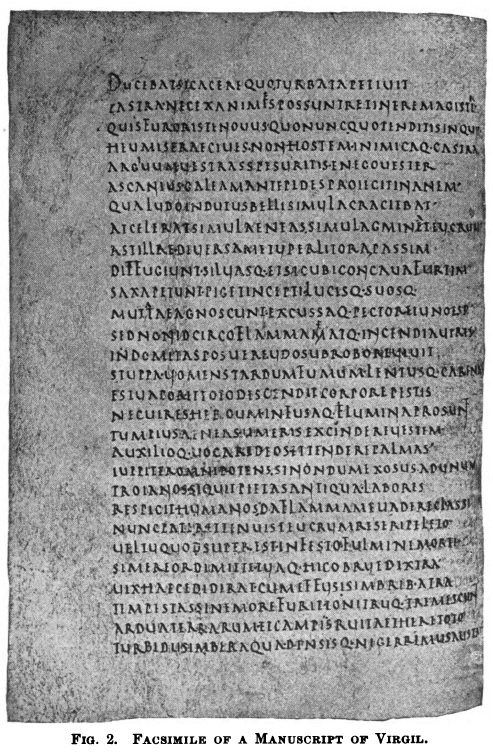 DUCEBATSICACEREQUOTURBATAPETIUIT
CASTRANECEXANIMESPOSSUNTRETINEREMAGISTR
QUISFURORISTENOUUSQUONUNCQUOTENDITISINQUIT
HEUMISERAECIUES·NONHOSTEMINIMICAQ·CASTRA
ARGIUUMUESTRASSPESURITIS·ENEGOUESTER
ASCANIUSGALEAMANTEPEDESPROIECITINANEM·
QUALUDOINDUTUSBELLISIMULACRACIEBAT·
ACCELERATSIMULAENEASSIMULAGMINATEUCRUM
ASTILLAEDIUERSAMETUPERLITORAPASSIM·
DIFFUGIUNT·SILUASQ·ETSICUBICONCAUAFURTIM
SAXAPETUNT·PIGETINCEPTILUCISQ·SUOSQ·
MUTATAEAGNOSCUNTEXCUSSAQ·PECTOREIUNOEST
SEDNONIDCIRCOFLAMMAMATQ·INCENDIAUIRIS
INDOMITASPOSUEREUDOSUBROBOREUIUIT
STUPPAUOMENSTARDUMFUMUMLENTUSQ·CARINAS
ESTUAPOMTOTODESCENDITCORPOREPESTIS
NECUIRESHEROUMINFUSAQ·FLUMINAPROSUNT
TUMPIUSAENEASUMERISEXCINDEREUESTEM·
AUXILIOQ·UOCAREDEOSETTENDEREPALMAS·
IUPPITEROMNIPOTENS,SINONDUMEXOSUSADUNUM
TROIANOSSIQUITPIETASANTIQUALABORES
RESPICITHUMANOSDAFLAMMAMEUADERECLASSI
NUNCPATERETTENUISTEUCRUMRESERIPELETO·
UELTUQUODSUPERESTINFESTOFULMINEMORTI
SIMEREORDEMITTETUAQ·HICOBRUEDEXTRA
UIXHAECEDIDERATCUMEFFUSISIMBRIB·ATRA
TEMPESTASSINEMOREFURITTONITRUQ·TREMESCUNT
ARDUATERRARUMETCAMPISRUITAETHERETOTO
TURBIDUSIMBERAQUADENSISQ·NIGERRIMUSAUSTRIS
FIG. 2. FACSIMILE OF A MANUSCRIPT OF VIRGIL.